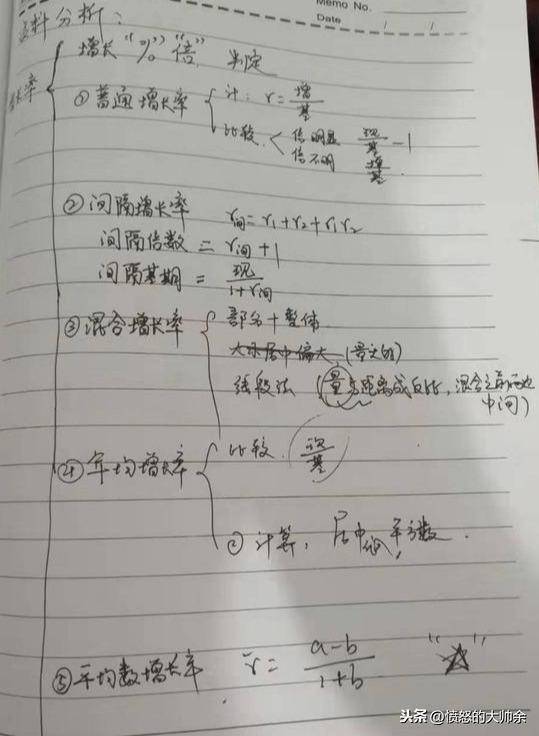 Memo No.
Date / /
资料分析：
增长率
增长“%”“倍”判定
①普通增长率
计：r=增/基
比较 < 倍明显 现/基-1
倍不明 增/基
②间隔增长率 r间=r1+r2+r1r2
间隔倍数=r间+1
间隔基期=现/1+r间
③混合增长率
部分+整体
大小居中偏大(量大的)
线段法(量与距离成反比，混合之前两边
中间)
④年均增长率
比较 现/基
②计算，居中 平方数.
⑤平均数增长率 r̄=a-b/1+b “☆”
头条 @愤怒的大帅余